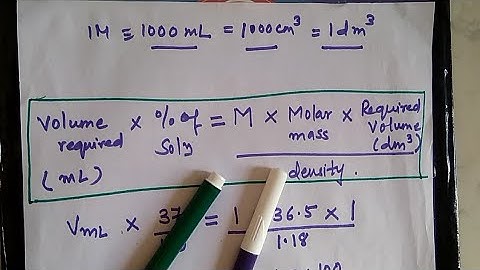 1M ≡ 1000 mL = 1000 cm³ = 1 dm³
Volume required (mL) × % of Soln = M × Molar mass × Required Volume (dm³)
density.
V mL × 37 = 1 36.5 × 1
1.18